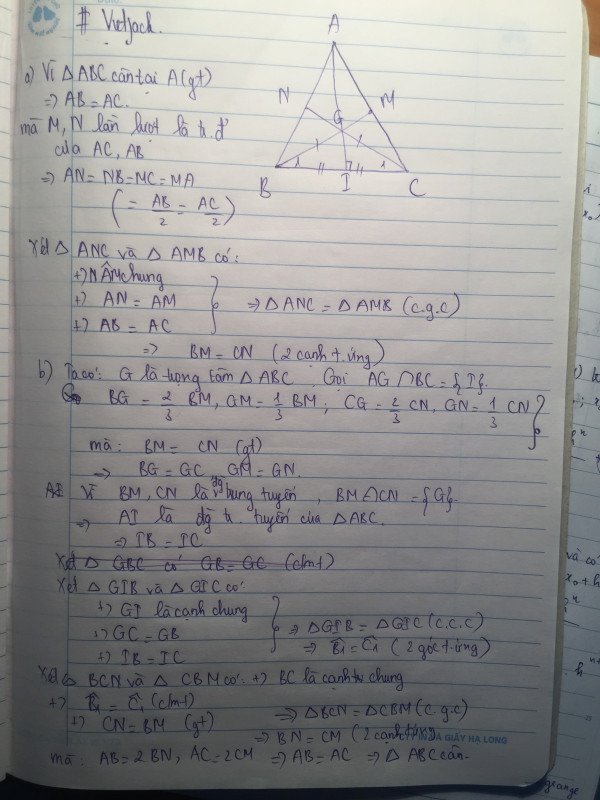 # Vietjack.
A
N
M
G
B
I
C
a) Vì Δ ABC cân tại A (gt)
=> AB = AC.
mà M, N lần lượt là tr. đ
của AC, AB
=> AN = NB = MC = MA
( = AB/2 = AC/2 )
Xét Δ ANC và Δ AMB có:
+) Â chung
+) AN = AM
+) AB = AC
=> Δ ANC = Δ AMB (c.g.c)
=> BM = CN (2 cạnh t.ứng)
b) Ta có: G là trọng tâm Δ ABC. Gọi AG ∩ BC = {I}.
BG = 2/3 BM, GM = 1/3 BM ; CG = 2/3 CN, GN = 1/3 CN
mà: BM = CN (gt)
=> BG = GC, GM = GN.
Vì BM, CN là đg trung tuyến, BM ∩ CN = {G}.
=> AI là đg tr. tuyến của Δ ABC.
=> IB = IC
Xét Δ GBC có GB = GC (cmt)
Xét Δ GIB và Δ GIC có:
+) GI là cạnh chung
+) GC = GB
+) IB = IC
=> Δ GIB = Δ GIC (c.c.c)
=> B̂1 = Ĉ1 (2 góc t.ứng)
Xét Δ BCN và Δ CBM có: +) BC là cạnh chung
+) B̂1 = Ĉ1 (cmt)
+) CN = BM (gt)
=> Δ BCN = Δ CBM (c.g.c)
=> BN = CM (2 cạnh t.ứng)
GIẤY HẠ LONG
mà: AB = 2BN, AC = 2CM => AB = AC => Δ ABC cân.